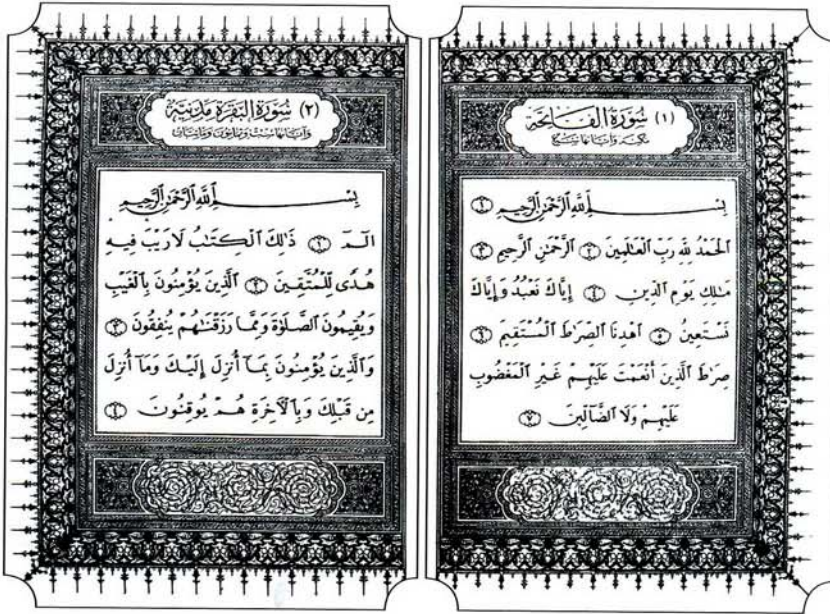 (١) سُورَةُ الفَاتِحَةِ
مكية وآياتها سبع
بِسْمِ ٱللَّهِ ٱلرَّحْمَٰنِ ٱلرَّحِيمِ ١
ٱلْحَمْدُ لِلَّهِ رَبِّ ٱلْعَالَمِينَ ٢ ٱلرَّحْمَٰنِ ٱلرَّحِيمِ ٣
مَٰلِكِ يَوْمِ ٱلدِّينِ ٤ إِيَّاكَ نَعْبُدُ وَإِيَّاكَ
نَسْتَعِينُ ٥ ٱهْدِنَا ٱلصِّرَٰطَ ٱلْمُسْتَقِيمَ ٦
صِرَٰطَ ٱلَّذِينَ أَنْعَمْتَ عَلَيْهِمْ غَيْرِ ٱلْمَغْضُوبِ
عَلَيْهِمْ وَلَا ٱلضَّآلِّينَ ٧
(٢) سُورَةُ البَقَرَةِ مَدَنِيَّة
وآياتها ست وثمانون ومائتان
بِسْمِ ٱللَّهِ ٱلرَّحْمَٰنِ ٱلرَّحِيمِ
الٓمٓ ١ ذَٰلِكَ ٱلْكِتَٰبُ لَا رَيْبَ فِيهِ
هُدًى لِّلْمُتَّقِينَ ٢ ٱلَّذِينَ يُؤْمِنُونَ بِٱلْغَيْبِ
وَيُقِيمُونَ ٱلصَّلَوٰةَ وَمِمَّا رَزَقْنَٰهُمْ يُنفِقُونَ ٣
وَٱلَّذِينَ يُؤْمِنُونَ بِمَآ أُنزِلَ إِلَيْكَ وَمَآ أُنزِلَ
مِن قَبْلِكَ وَبِٱلْآخِرَةِ هُمْ يُوقِنُونَ ٤